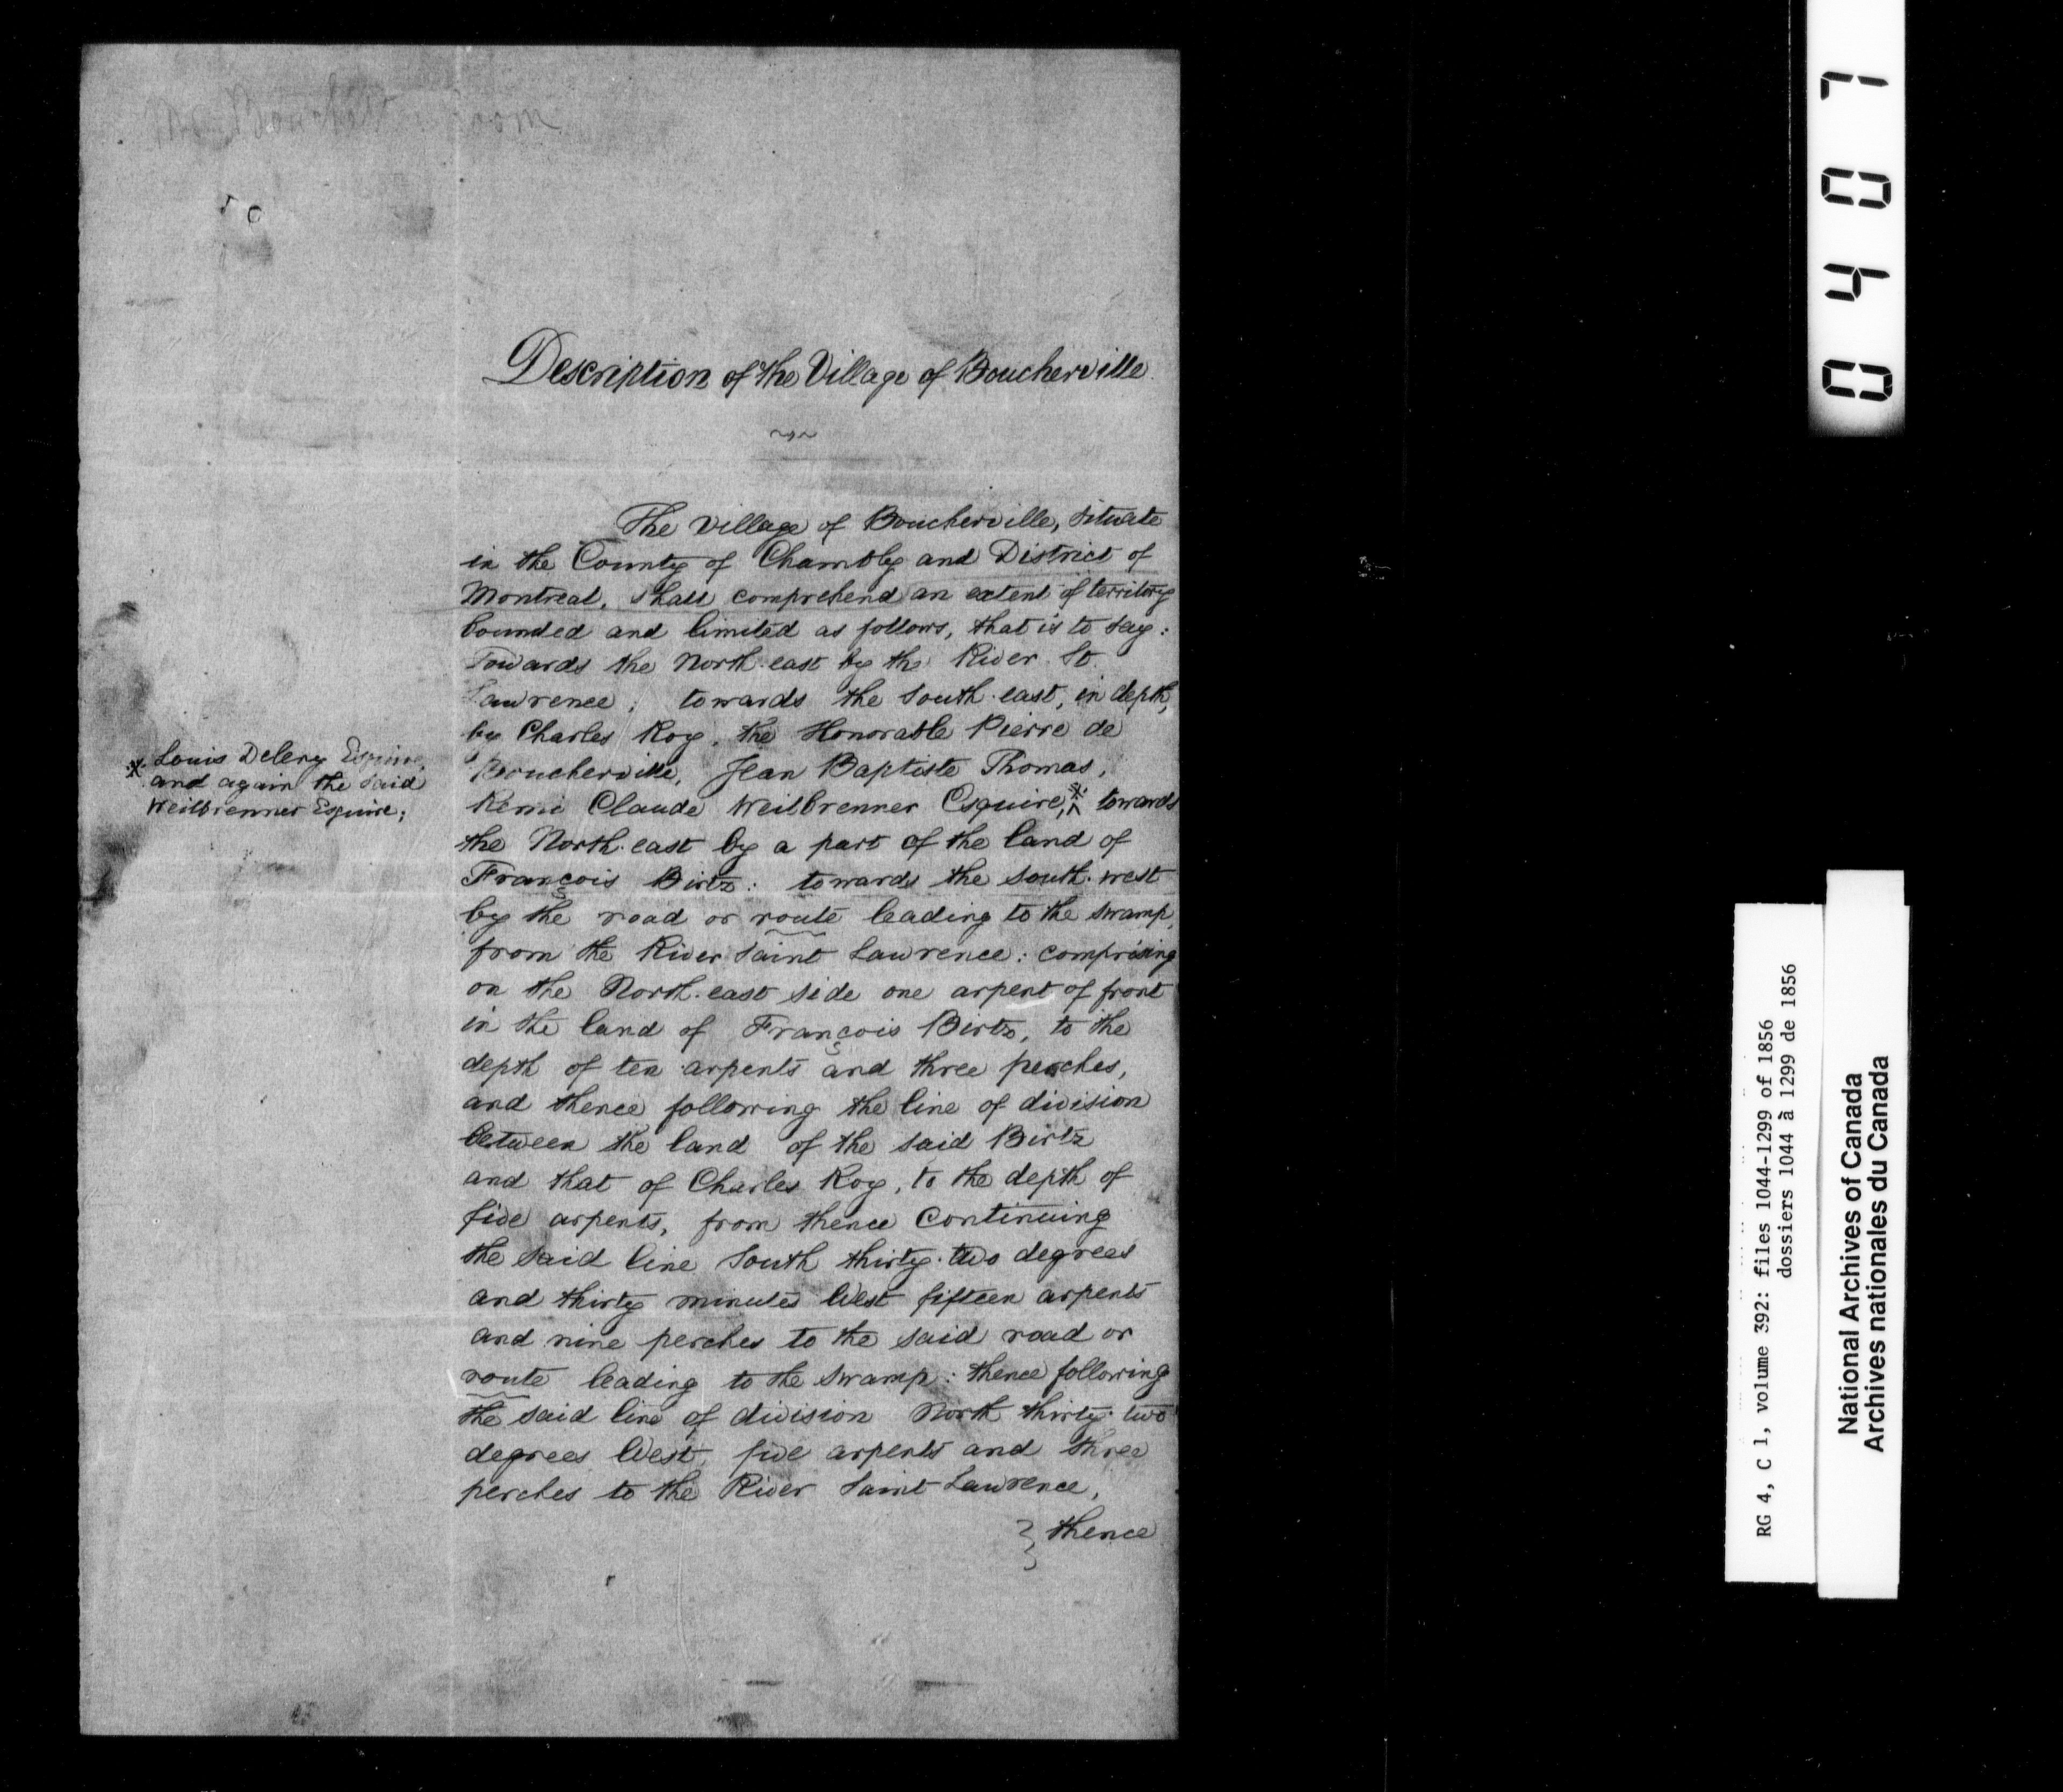 Description of the Village of Boucherville
The Village of Boucherville, situate
in the County of Chambly and District of
Montreal, shall comprehend an extent of territory
bounded and limited as follows, that is to say:
Towards the North-east by the River St.
Lawrence; towards the South-east, in depth,
by Charles Roy, the Honorable Pierre de
Boucherville, Jean Baptiste Thomas,
Remi Claude Weilbrenner Esquire,* towards
* Louis Delery Esquire,
and again the said
Weilbrenner Esquire;
the North-east by a part of the land of
François Birtz: towards the South-west
by the road or route leading to the swamp,
from the River Saint Lawrence: comprising
on the North-east side one arpent of front
in the land of François Birtz, to the
depth of ten arpents and three perches,
and thence following the line of division
between the land of the said Birtz
and that of Charles Roy, to the depth of
five arpents, from thence Continuing
the said line South thirty-two degrees
and thirty minutes West fifteen arpents
and nine perches to the said road or
route leading to the swamp: thence following
the said line of division North thirty-two
degrees West, five arpents and three
perches to the River Saint Lawrence,
thence
0407
RG 4, C 1, volume 392: files 1044-1299 of 1856
dossiers 1044 à 1299 de 1856
National Archives of Canada
Archives nationales du Canada